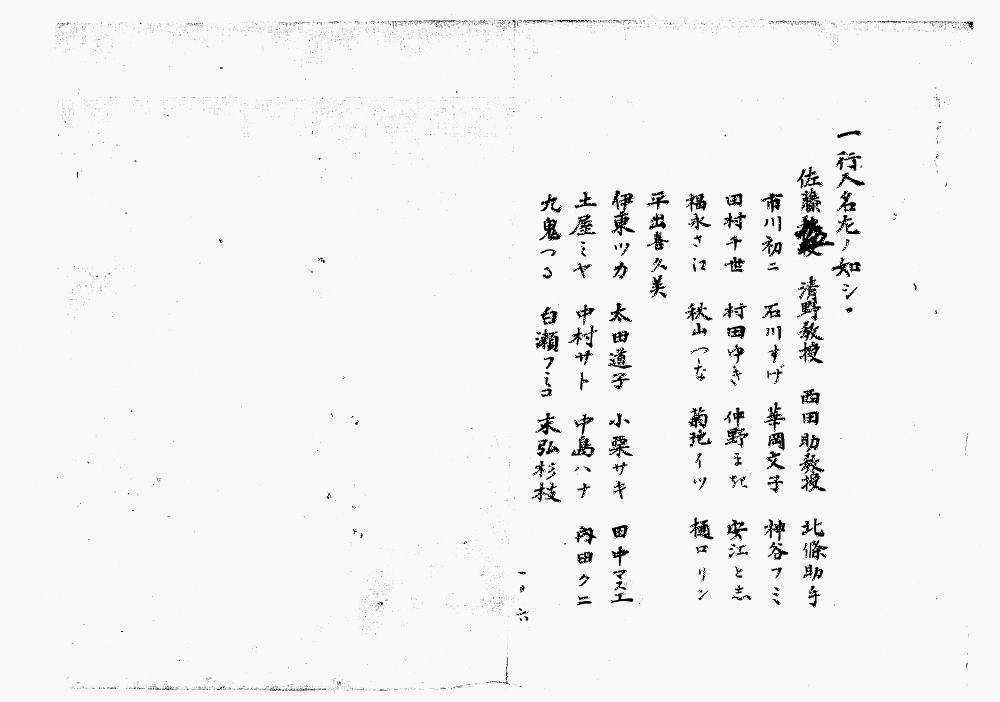 一行人名左ノ如シ。
佐藤教授　清野教授　西田助教授　北條助手
市川初ニ　石川すげ　華岡文子　神谷フミ
田村千世　村田ゆき　仲野ま起　安江と志
福永さ江　秋山つな　菊地イツ　樋口リン
平出喜久美
伊東ツカ　太田道子　小栗サキ　田中マスエ
土屋ミヤ　中村サト　中島ハナ　内田クニ
九鬼つる　白瀬フミコ　末弘杉枝
一〇六